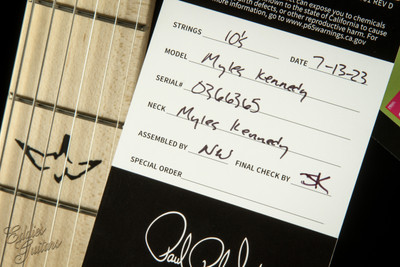 01 REV D
can expose you to chemicals
known to the State of California to cause
birth defects, or other reproductive harm. For
more information, go to www.p65warnings.ca.gov
STRINGS 10's DATE 7-13-23
MODEL Myles Kennedy
SERIAL# 0366365
NECK Myles Kennedy
ASSEMBLED BY NW FINAL CHECK BY SK
SPECIAL ORDER
Paul
Eddies
Guitars